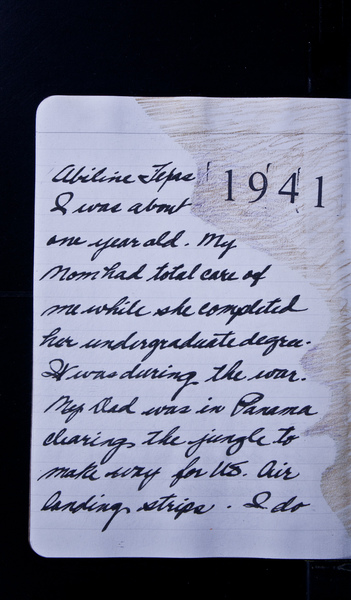 Abiline Texas
1941
I was about
one year old. My
Mom had total care of
me while she completed
her undergraduate degree.
It was during the war.
My Dad was in Panama
clearing the jungle to
make way for US. Air
landing strips. I do